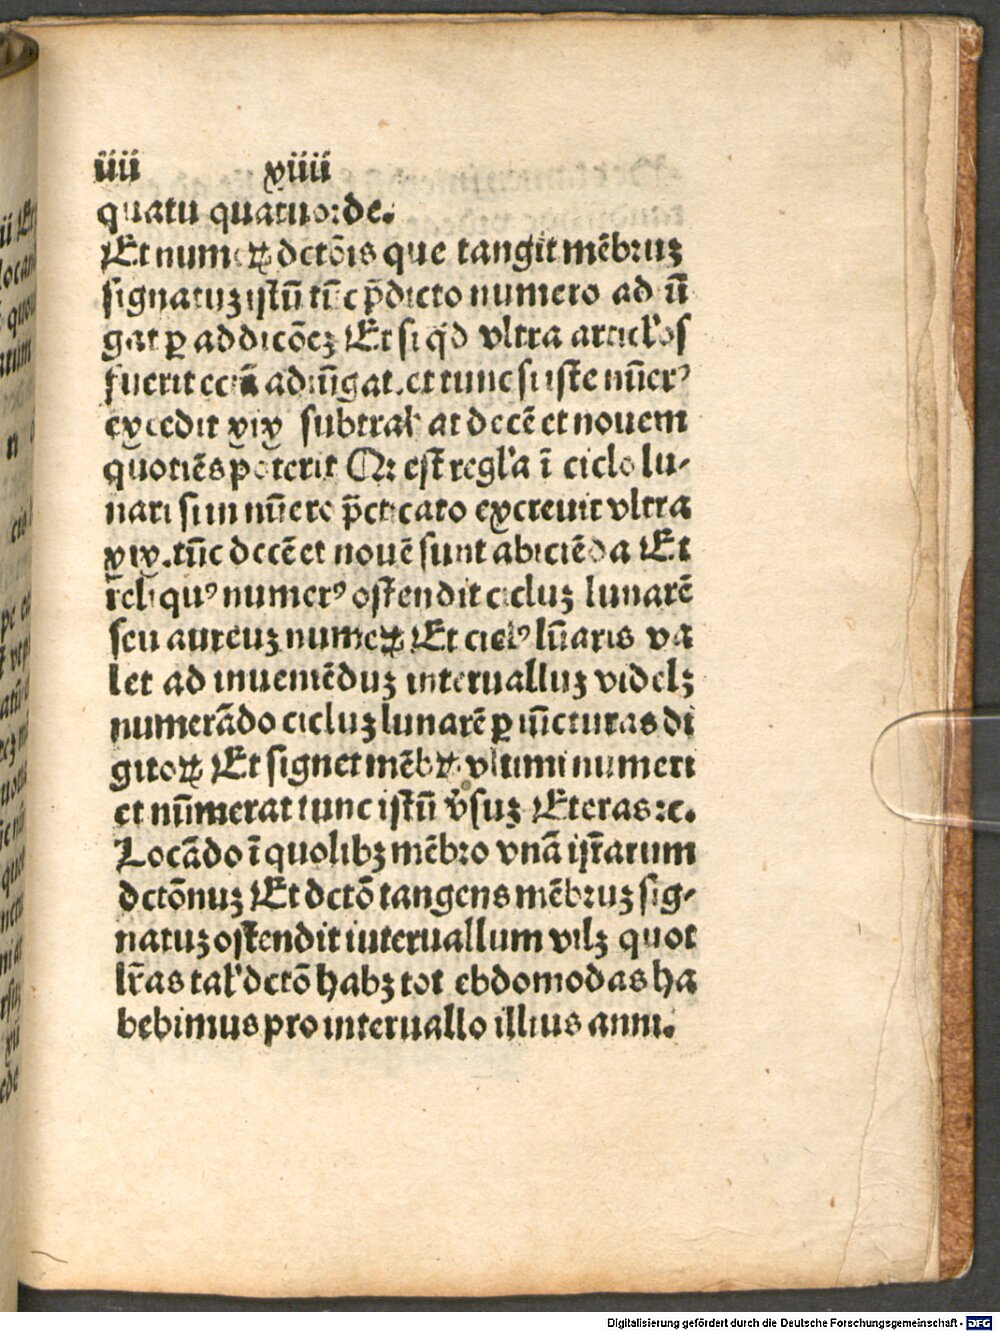 iiii xiiii
quatu quatuorde.
Et numeꝝ dctōis que tangit mēbruz
signatuz istū tūc p̄dicto numero ad iū
gat ꝑ addicōez Et si qd̓ vltra articl'os
fuerit adiūgat. et tunc si iste nūerꝰ
excedit xix subtrah̓at decē et nouem
quotiēs poterit Qr est regl'a ī ciclo lu-
nari si in nūero p̄cticato excreuit vltra
xix. tūc decē et nouē sunt abiciēda Et
reliquꝰ numerꝰ ostendit cicluz lunarē
seu aureuz numeꝝ Et ciclꝰ lūaris va
let ad inueniēduz interualluz videlz
numerādo cicluz lunarē ꝑ iūcturas di
gitoꝝ Et signet mēbꝝ vltimi numeri
et nūmerat tunc istū v̄suz Et eras ꝛc.
Locādo ī quolibz mēbro vnā istarum
dctōnuz Et dctō tangens mēbruz sig-
natuz ostendit interuallum vilz quot
lr̄as tal' dctō habz tot ebdomodas ha
bebimus pro interuallo illius anni.
Digitalisierung gefördert durch die Deutsche Forschungsgemeinschaft - DFG